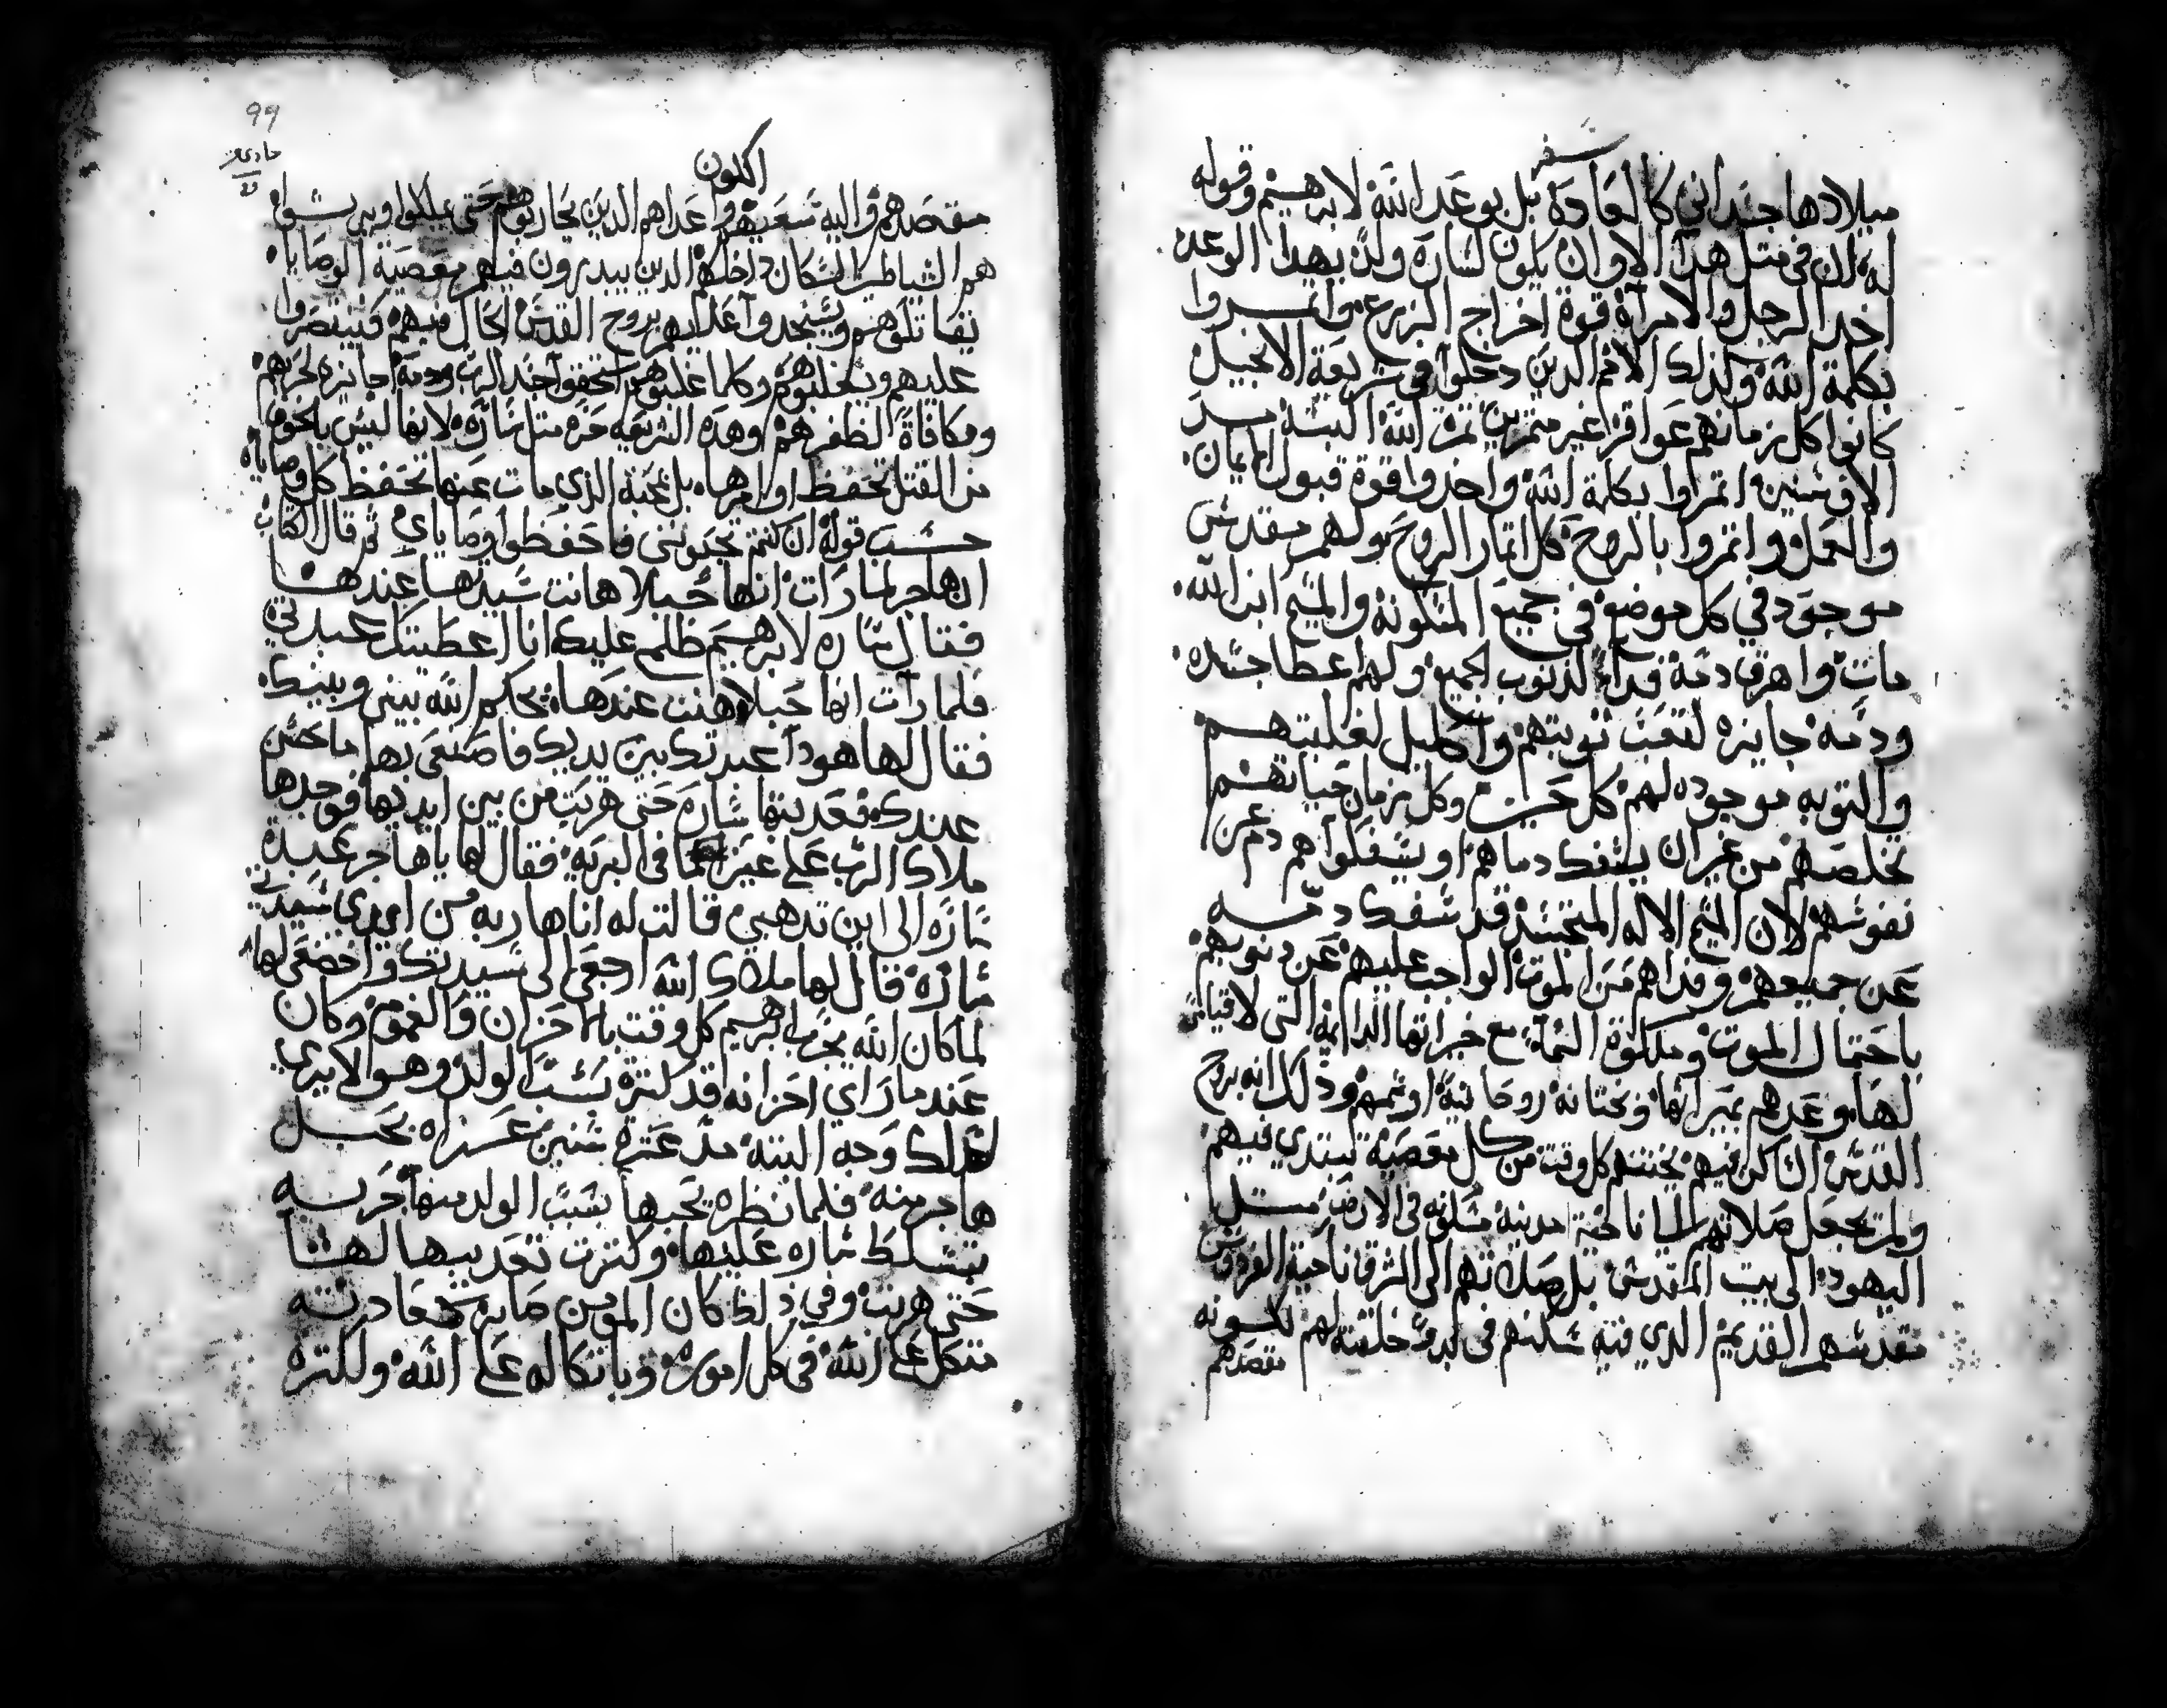 سفر
ميلادها جسداني كالعاده بل بوعد الله لابرهيم وقوله
له ان في مثل هدا الاوان يكون لساره ولد بهدا الوعد
اخد الرجل والامراه قوة اخراج الزرع واتمروا
بكلمة الله وكذلك الامم الدين دخلوا في شريعة الانجيل
كانوا كل زمانهم عواقر غير متمرين تمرة الله البته
الاف سنين اتمراوا بكلمة الله واخدوا قوة قبول الايمان
والعمل واتمروا بالروح كل اتمار الروح مولهم مقدس
موجود في كل موضع في جميع المسكونه والمسيح ابن الله
مات واهرق دمه فداء لدنوب الجميع ولهم اعطا جسده
ودمه جايزه لتعب توبتهم واكليل لغلبتهم
والتوبه موجوده لهم كل حين وكل زمان حياتهم
تخلصهم من غير ان يسفك دماهم او يسفكوا هم دم عن
نفوسهم لان المسيح الاله المتجسد قد سفك دمه
عن جميعهم وفداهم من الموت الواجب عليهم عن دنوبهم
باحتمال الموت وملكوة السماء مع خيراتها الدايمه التي لا قياس
لها وعدهم بميراتها وبختانه روحانية اوسمهم وذلك انه بروح
القدس الساكن فيهم يختنهم كل وقت من كل معصية تبتدي فيهم
ولم يجعل صلاتهم الى ناحية مدينه مسكونه في الارض مثل
اليهود الى بيت المقدس بل صلاتهم الى الشرق ناحية الفردوس
مقدسهم القديم الدي فيه سكنهم في بدو خلقته لهم لكونه
مقصدهم
99
حادي عشر
الكون
مقصدهم واليه سعيهم واعداهم الدين يحاربوهم حتى يملكوا وبه يسوا
هم الشياطين السكان داخلهم الدين يبدرون فيهم معصية الوصايا
يقاتلوهم ويستنجدوا عليهم بروح القدس الحال فيهم فينتصروا
عليهم ويغلبوهم وكلما غلبوهم استحقوا جسد الرب ودمه جايزه لحربهم
ومكافاة الظفرهم وهده الشريعه حره مثل ساره لانها ليس بالخوف
من القتل تحفظ اوامرها بل بمحبة الذي مات عنها تحفظ كل وصاياه
حسب قوله ان كنتم تحبونني فاحفظوا وصاياي ثم قال الكتاب
ان هاجر لما رات انها حبلا هانت سيدتها عندها
فقال ساره لابرهيم ظلمي عليك انا اعطيتك عبدتي
فلما رات انها حبلا هنت عندها يحكم الله بيني وبينك
فقال لها هودا عبدتك بين يديك فاصنعي بها ما حسن
عندك فعدبتها ساره حتى هربت من بين ايديها فوجدها
ملاك الرب على عين الما في البريه فقال لها يا هاجر عبدة
ساره الى اين تدهبي قالت له انا هاربه من ايدي سيدتي
ساره قال لها ملاك الله ارجعي الى سيدتك واخضعي لها
لما كان الله يجرب ابرهيم كل وقت بالاحزان والغموم وكان
عندما راي احزانه قد كترة بسبب الولد وهو لا يري
لدلك وجه البته مد عترة سنين عزاه بحبل
هاجر منه فلما نظره يحبها بسبب الولد منها جربه
بتسلط ساره عليها وكترت تعديبها لها
حتى هربت وفي ذلك كان المومن صابر كعادته
متكل على الله في كل اموره وباتكاله على الله ولكترة